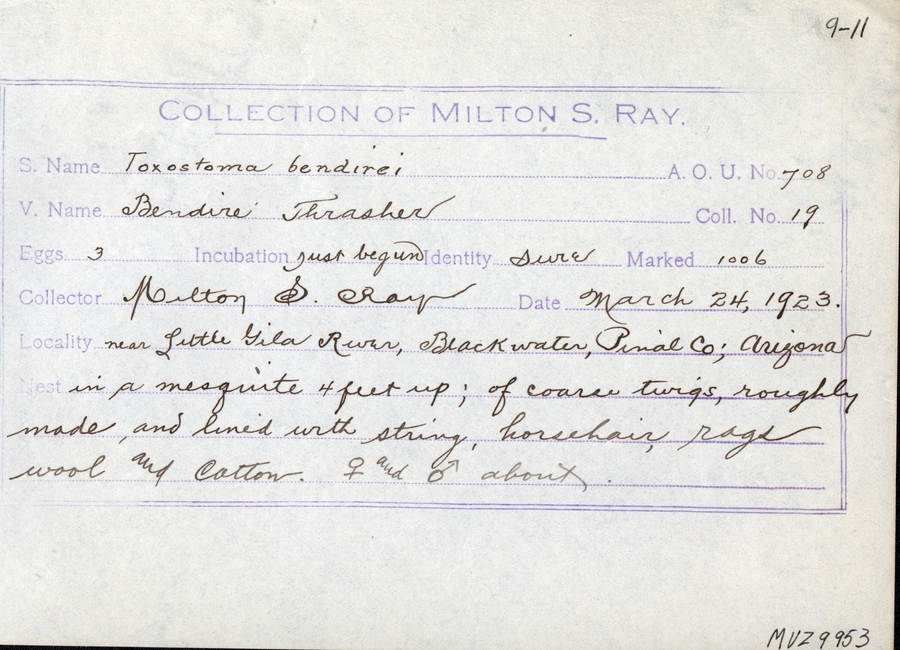 9-11
COLLECTION OF MILTON S. RAY.
S. Name Toxostoma bendirei A. O. U. No. 708
V. Name Bendire Thrasher Coll. No. 19
Eggs 3 Incubation just begun Identity sure Marked 1006
Collector Milton S. Ray Date March 24, 1923.
Locality near Little Gila River, Blackwater, Pinal Co; Arizona
Nest in a mesquite 4 feet up; of coarse twigs, roughly
made, and lined with string, horsehair, rags
wool and cotton. ♀ and ♂ about.
MVZ 9953